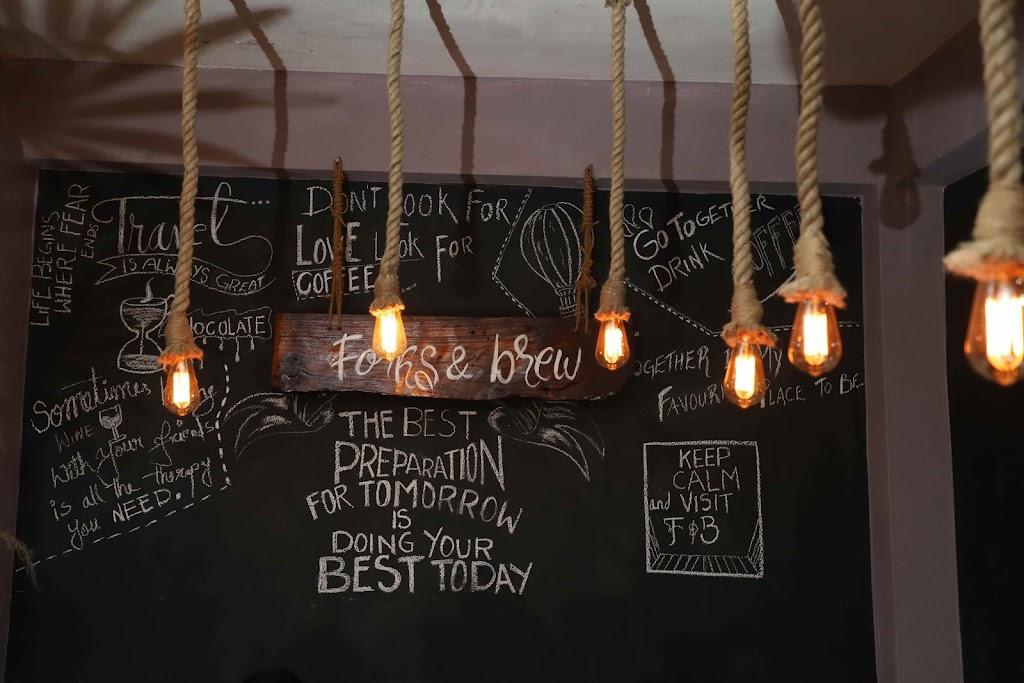 LIFE BEGINS
WHERE FEAR
ENDS
Travel...
IS ALWAYS GREAT
DON'T LOOK FOR
LOVE LOOK FOR
COFFEE
GO TOGETHER
DRINK
COFFEE
CHOCOLATE
Forks & brew
TOGETHER MY
FAVOURITE PLACE TO BE.
Sometimes
WINE
with your friends
is all the therapy
you NEED.
THE BEST
PREPARATION
FOR TOMORROW
IS
DOING YOUR
BEST TODAY
KEEP
CALM
and VISIT
F&B